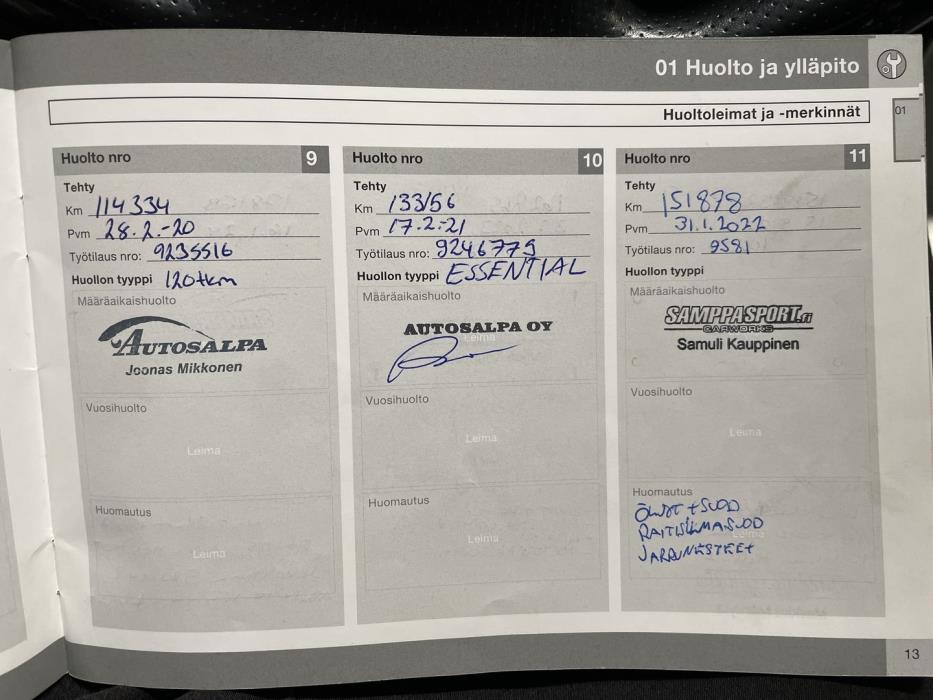 01 Huolto ja ylläpito
Huoltoleimat ja -merkinnät
01
Huolto nro 9
Tehty
Km 114334
Pvm 28.2.-20
Työtilaus nro: 9235516
Huollon tyyppi 120tkm
Määräaikaishuolto
AUTOSALPA
Joonas Mikkonen
Vuosihuolto
Leima
Huomautus
Leima
Huolto nro 10
Tehty
Km 133156
Pvm 17.2.-21
Työtilaus nro: 9246779
Huollon tyyppi ESSENTIAL
Määräaikaishuolto
AUTOSALPA OY
Leima
Vuosihuolto
Leima
Huomautus
Leima
Huolto nro 11
Tehty
Km 151878
Pvm 31.1.2022
Työtilaus nro: 9581
Huollon tyyppi
Määräaikaishuolto
SAMPPASPORT.fi
CARWORKS
Samuli Kauppinen
Vuosihuolto
Leima
Huomautus
ÖLJYT+SUOD
RAITISILMASUOD
Leima
JARRUNESTEET
13